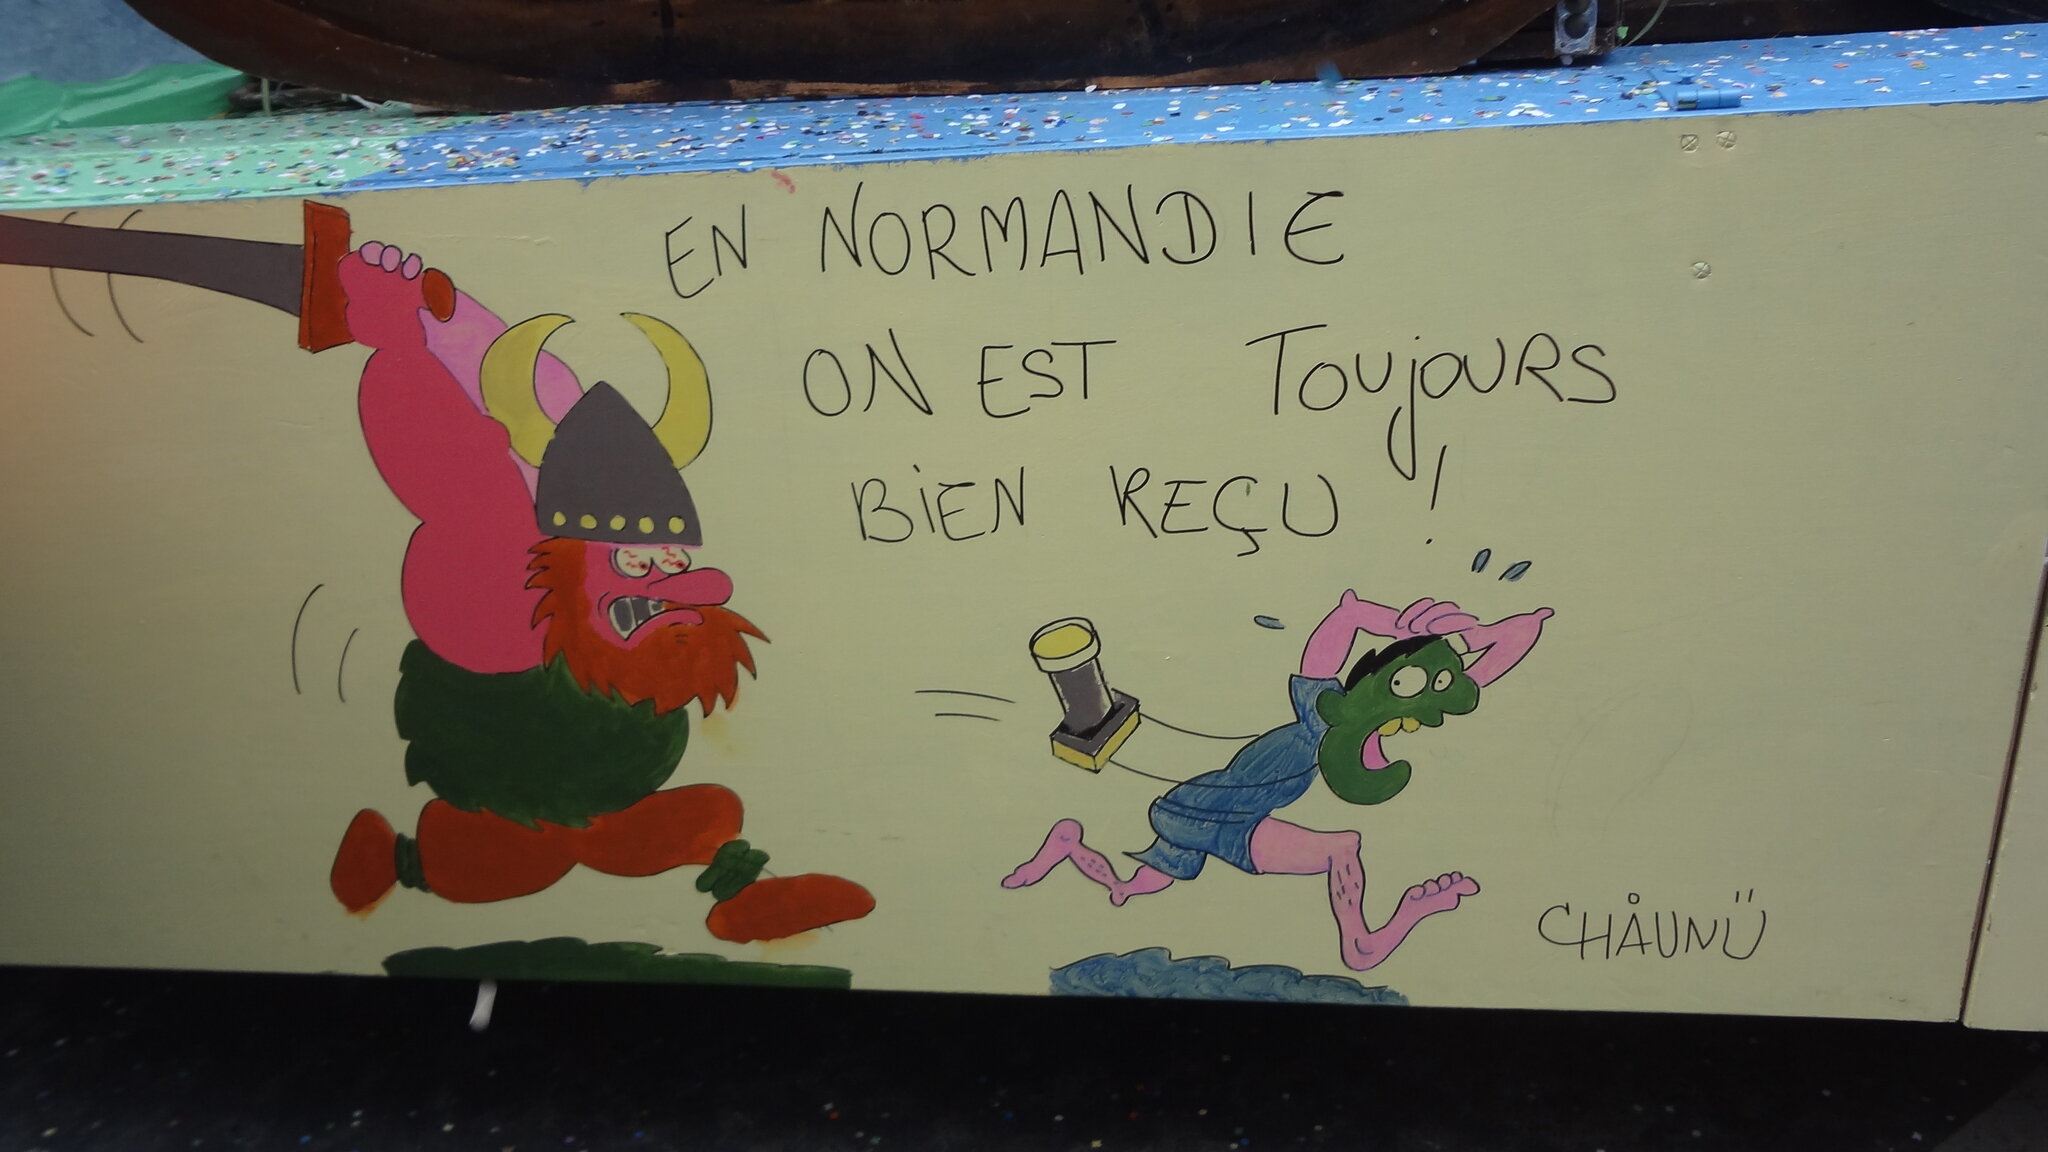 EN NORMANDIE
ON EST TOUjOURS
BiEN REÇU !
CHÅUNÜ